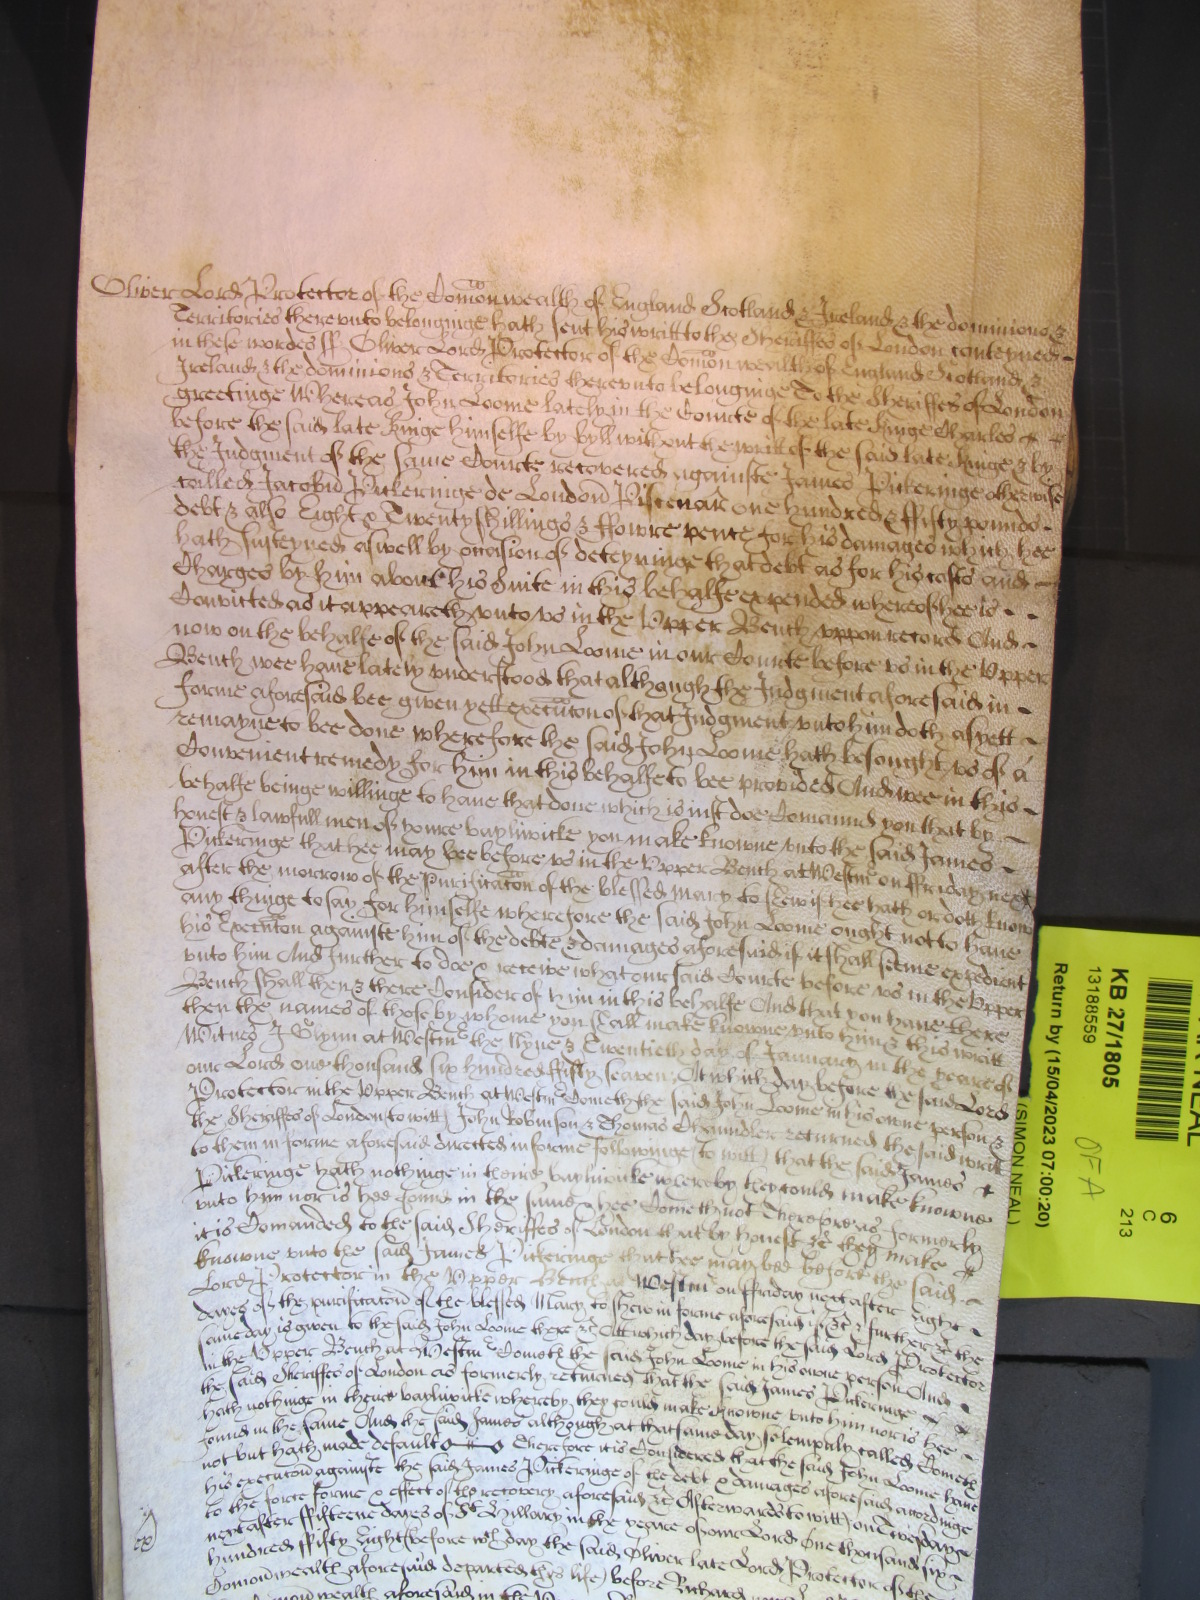 Oliver Lord Protector of the Comonwealth of England Scotland & Ireland & the dominions &
Territories therevnto belonginge hath sent his writt to the Sheriffes of London conteyned
in these wordes ss Oliver Lord Protector of the Comonwealth of England Scotland &
Ireland & the dominions & Territories therevnto belonginge To the Sheriffes of London
greetinge Whereas John Loome lately in the Courte of the late Kinge Charles
before the said late Kinge himselfe by byll without the writt of the said late Kinge & by
the Judgment of the same Courte recovered againste James Pickeringe otherwise
called Jacobu Pickeringe de London Piscenar one hundred & ffifty pounds
debt & also Eight & Twenty shillings & ffowre pence for his damages which hee
hath susteyned aswell by occasion of deteyninge that debt as for his costs and
Charges by him about his Suite in this behalfe expended whereof hee is
Convicted as it appeareth vnto vs in the Vpper Bench vppon record And
now on the behalfe of the said John Loome in our Courte before vs in the Vpper
Bench wee haue lately vnderstood that although the Judgment aforesaid in
forme aforesaid bee given yett execution of that Judgment vnto him doth as yett
remayne to bee done wherefore the said John Loome hath besought vs of a
Convenient remedy for him in this behalfe to bee provided And wee in this
behalfe beinge willinge to haue that done which is iust doe Comaund you that by
honest & lawfull men of youre bayliwicke you make knowne vnto the said James
Pickeringe that hee may bee before vs in the Vpper Bench at Westmr on ffriday next
after the morrow of the Purificacon of the blessed Mary to shew if hee hath or doth know
any thinge to say for himselfe wherefore the said John Loome ought not to haue
his Execution againste him of the debte & damages aforesaid if it shall seeme expedient
vnto him And further to doe & receive what our said Courte before vs in the Vpper
Bench shall then & there Consider of him in this behalfe And that you haue there
then the names of those by whome you shall make knowne vnto him & this writt
Witnes J Glynn at Westmr the Nyne & Twentieth day of January in the yeare of
our Lord one thousand six hundred ffifty seaven At which day before the said Lord
Protector in the Vpper Bench at Westmr Cometh the said John Loome in his owne person &
the Sheriffes of London (to witt) John Robinson & Thomas Chaundler returned the said writt
to them in forme aforesaid directed in forme followinge (to witt) that the said James
Pickeringe hath nothinge in their bayliwicke whereby they could make knowne
vnto him nor is hee found in the same & hee Cometh not Therefore as formerly
it is Comanded to the said Sheriffes of London that by honest &c they make
knowne vnto the said James Pickeringe that hee may bee before the said
Lord Protector in the Vpper Bench at Westmr on ffriday next after Eight
dayes of the purificacon of the blessed Mary to shew in forme aforesaid if &c & further &c the
same day is given to the said John Loome there &c Att which day before the said Lord Protector
in the Vpper Bench at Westmr Cometh the said John Loome in his owne person And
the said Sheriffes of London as formerly returned that the said James Pickeringe
hath nothinge in theire bayliwicke whereby they could make knowne vnto him nor is hee
found in the same And the said James although at that same day solempnly called Cometh
not but hath made default Therefore it is Considered that the said John Loome haue
his execution againste the said James Pickeringe of the debt & damages aforesaid accordinge
to the force forme & effect of the recovery aforesaid &c Afterwards (to witt) on Twesday
next after ffifteene dayes of St Hillary in the yeare of our Lord One thousand six
hundred ffifty Eight (before wch day the said Oliver late Lord Protector of the
Comonwealth aforesaid departed this life) before Richard
wealth aforesaid in the
ex
KB 27/1805
13188559
Return by (15/04/2023 07:00:20)
(SIMON NEAL)
NEAL
OFA
6
C
213